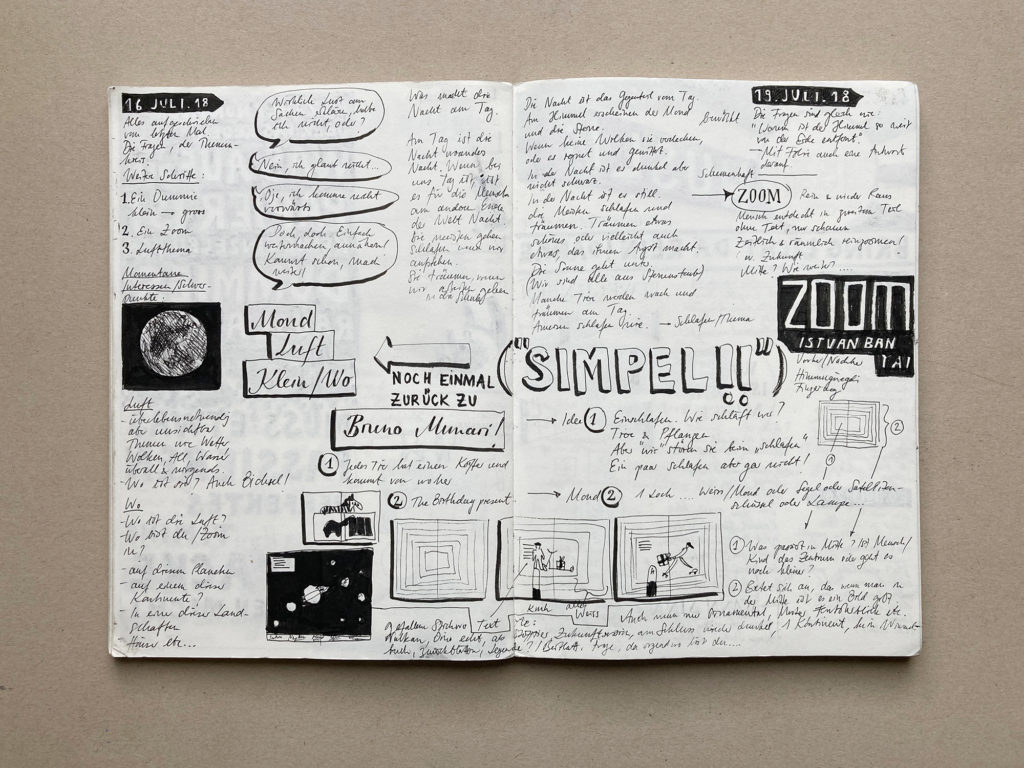 16 JULI. 18
Alles aufgeschrieben
vom letzten Mal
Die Fragen, der Themen-
kreis.
Weitere Schritte:
1. Ein Dummie
klein → gross
2. Ein Zoom
3. Luftthema
Momentane
Interessen/Schwer-
punkte:
Wirklich Lust am
Sachen
ich nicht, oder?
Nein, ich glaub nicht...
Oje, ich komme nicht
vorwärts
Doch, doch. Einfach
weitermachen,
Kommt schon, mach
weiter!
Was macht die
Nacht am Tag.
Am Tag ist die
Nacht woanders
Nacht. Wenn bei
uns Tag ist, ist
es für die Menschen
am anderen Ende
der Welt Nacht.
Die meisten gehen
schlafen wenn wir
aufstehen.
Sie träumen, wenn
wir arbeiten gehen
in die Schule
Mond
Luft
Klein/Wo
NOCH EINMAL
ZURÜCK ZU
Bruno Munari!
Luft
- überlebensnotwendig
aber unsichtbar
Themen wie Wetter
Wolken, All, Wasser
überall & nirgends.
- Wo ist sie? Auch Bichsel!
Wo
- Wo ist die Luft?
- Wo bist du/Zoom
- auf diesem Planeten
- auf einem dieser
Kontinente?
- In einer dieser Land-
schaften
Häuser etc...
1 Jedes Tier hat einen Koffer und
kommt von woher
2 The Birthday present
gefallen Text
Vulkan,
buch,
Die Nacht ist das Gegenteil vom Tag
Am Himmel erscheinen der Mond
und die Sterne.
Wenn keine Wolken sie verdecken,
oder es regnet und gewittert.
In der Nacht ist es dunkel aber
nicht schwarz.
In der Nacht ist es still
die Meisten schlafen und
träumen. Träumen etwas
schönes oder vielleicht auch
etwas, das ihnen Angst macht.
Die Sonne geht unter.
(Wir sind alle aus Sternenstaub)
Manche Tiere werden wach und
träumen am Tag.
Ameisen schlafen nie. → Schlafen/Thema
19. JULI. 18
Die Fragen sind gleich wie:
"Warum ist der Himmel so weit
von der Erde entfernt."
- Mit Folie auch eine Antwort
darauf
→ ZOOM Rein & wieder Raus
Mensch entdeckt in grossem Text
ohne Text, nur schauen
Zeitlich & räumlich reinzoomen!
in Zukunft
Mitte? Wie weiter....
ZOOM
ISTVAN BAN
TAI
Vorher/Nachher
("SIMPEL!!")
→ Idee 1 Einschlafen. Wie schläft wer?
Tiere & Pflanzen
Aber wir "stören sie beim schlafen"
Ein paar schlafen aber gar nicht!
2
1
→ Mond 2 1 Loch .... Weiss/Mond oder Segel oder Satelliten-
schüssel oder Lampe...
1 Was passiert in Mitte? Ist Mensch/
Kind das Zentrum oder geht es
noch kleiner?
2 Bietet sich an, das wenn man in
der Mitte ist es ein Bild gibt
Kuh alles
Weiss
Auch wenn nur Ornamental, Muster, etc.
Zukunftsvision, am Schluss wieder dunkel, 1 Kontinent, beim
Frage, der irgendwo ist der....